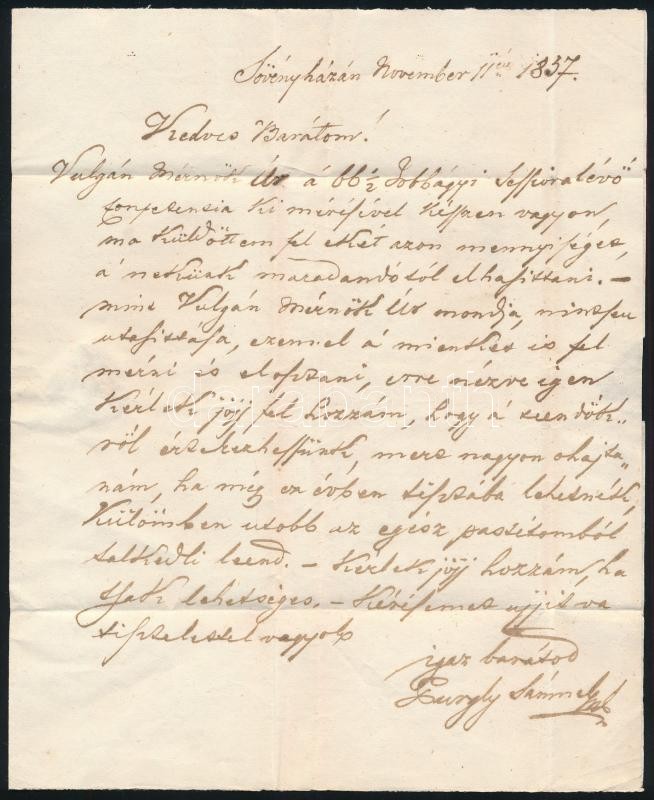 Sövényházán November 11én 1857.
Kedves Barátom!
Vulgán Mérnök Úr á 66½ Jobbágyi Sessioralévő
Competensia ki mérésével készen vagyon,
ma küldöttem fel eket azon mennyiséget,
á nekünk maradandótól elhasittani. –
mint Vulgán Mérnök Úr mondja, nintsen
utasittása, ezennel á mienket is fel
mérni és elosztani, erre nézve igen
kérlek jőjj fél hozzám, hogy á teendők„
ről értekezhessünk, mert nagyon ohajta„
nám, ha még ez évben tisztába lehetnénk,
Külömben utobb az egész
leend. – Kérlek jöjj hozzám, ha
tsak lehetséges. – Kérésemet ujjitva
tisztelettel vagyok
igaz barátod
Purgly Sámuel